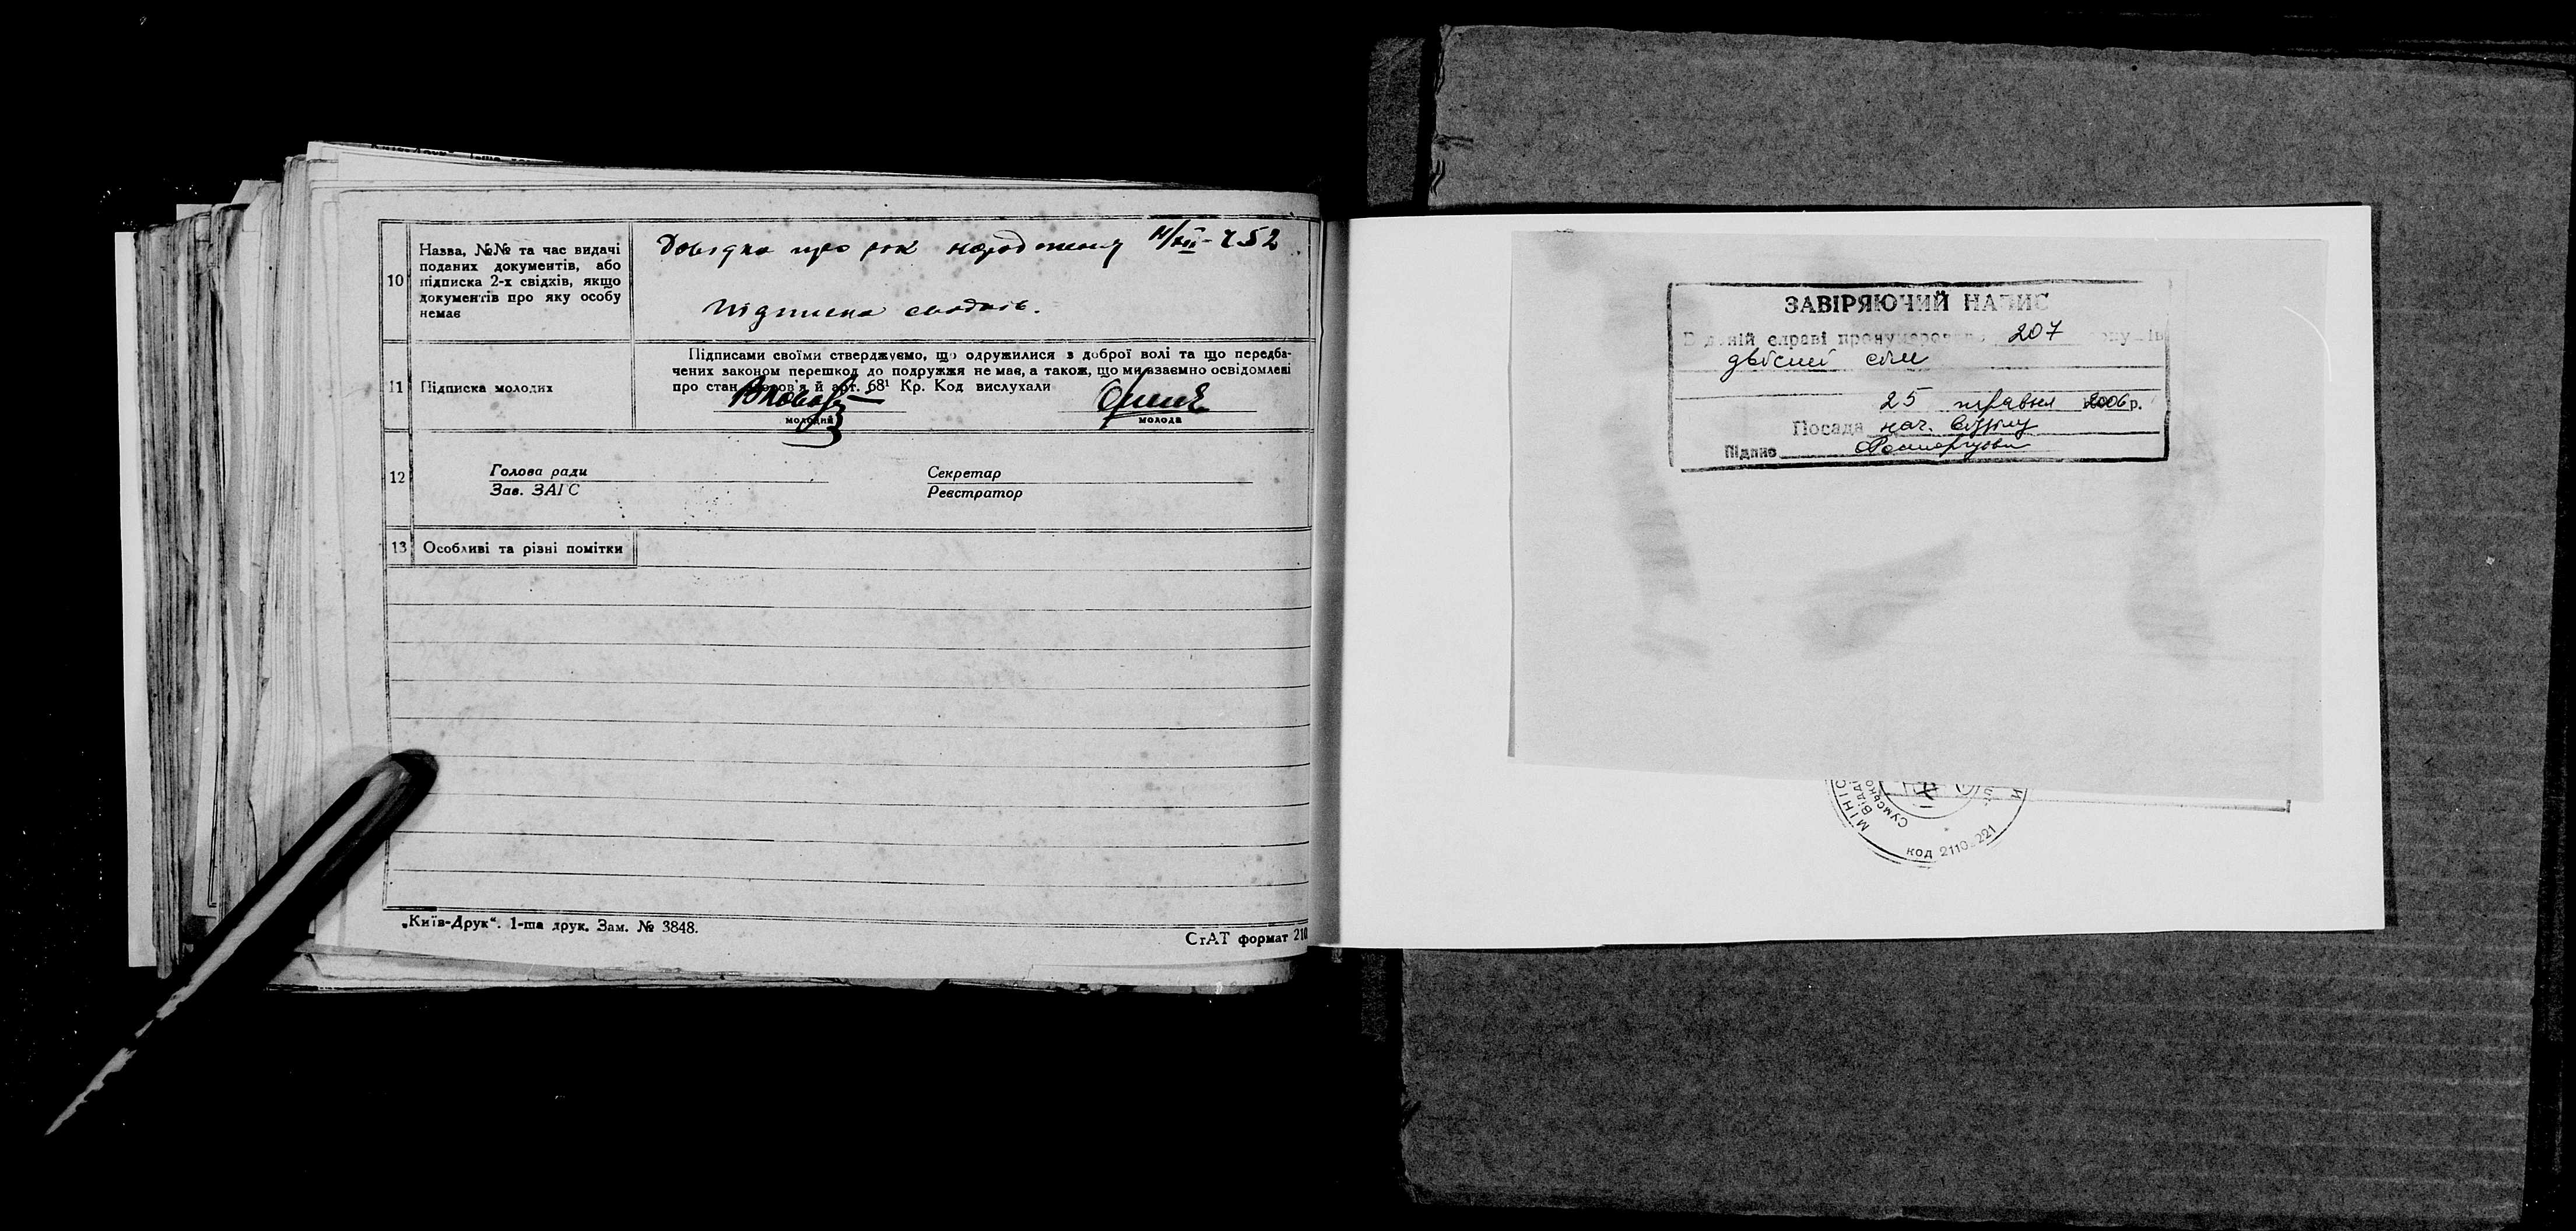 10
Назва, №№ та час видачі
поданих документів, або
підписка 2-х свідків, якщо
документів про яку особу
немає
Довідка про рок народження
Підписка свідків.
11
Підписка молодих
Підписами своїми стверджуємо, що одружилися з доброї волі та що передба-
чених законом перешкод до подружжя не має, а також, що ми взаємно освідомлені
про стан здоров'я й арт. 68¹ Кр. Код вислухали
молодий
молода
12
Голова ради
Зав. ЗАГС
Секретар
Реєстратор
13
Особливі та різні помітки
„Київ-Друк“. 1-ша друк. Зам. № 3848.
СгАТ формат 210
ЗАВІРЯЮЧИЙ НАПИС
В даній справі пронумеровано 207
двісті сім
25 травня 2006 р.
Посада нач. відділу
Підпис
МІНІС
ВІДДІ
СУМСЬКО
код 2110 221